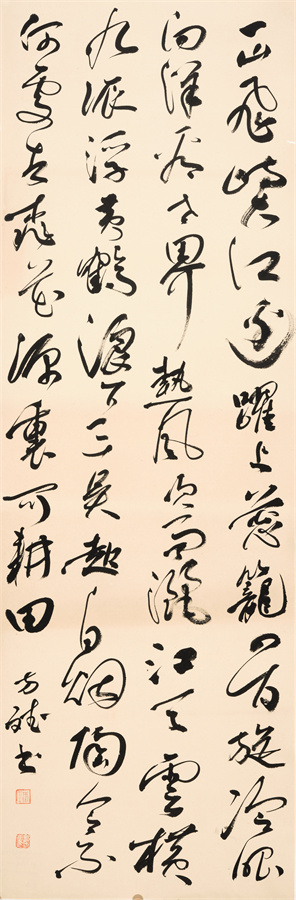 一山飞峙大江边跃上葱茏四百旋冷眼
向洋看世界热风吹雨洒江天云横
九派浮黄鹤浪下三吴起白烟陶令不
知何处去桃花源里可耕田